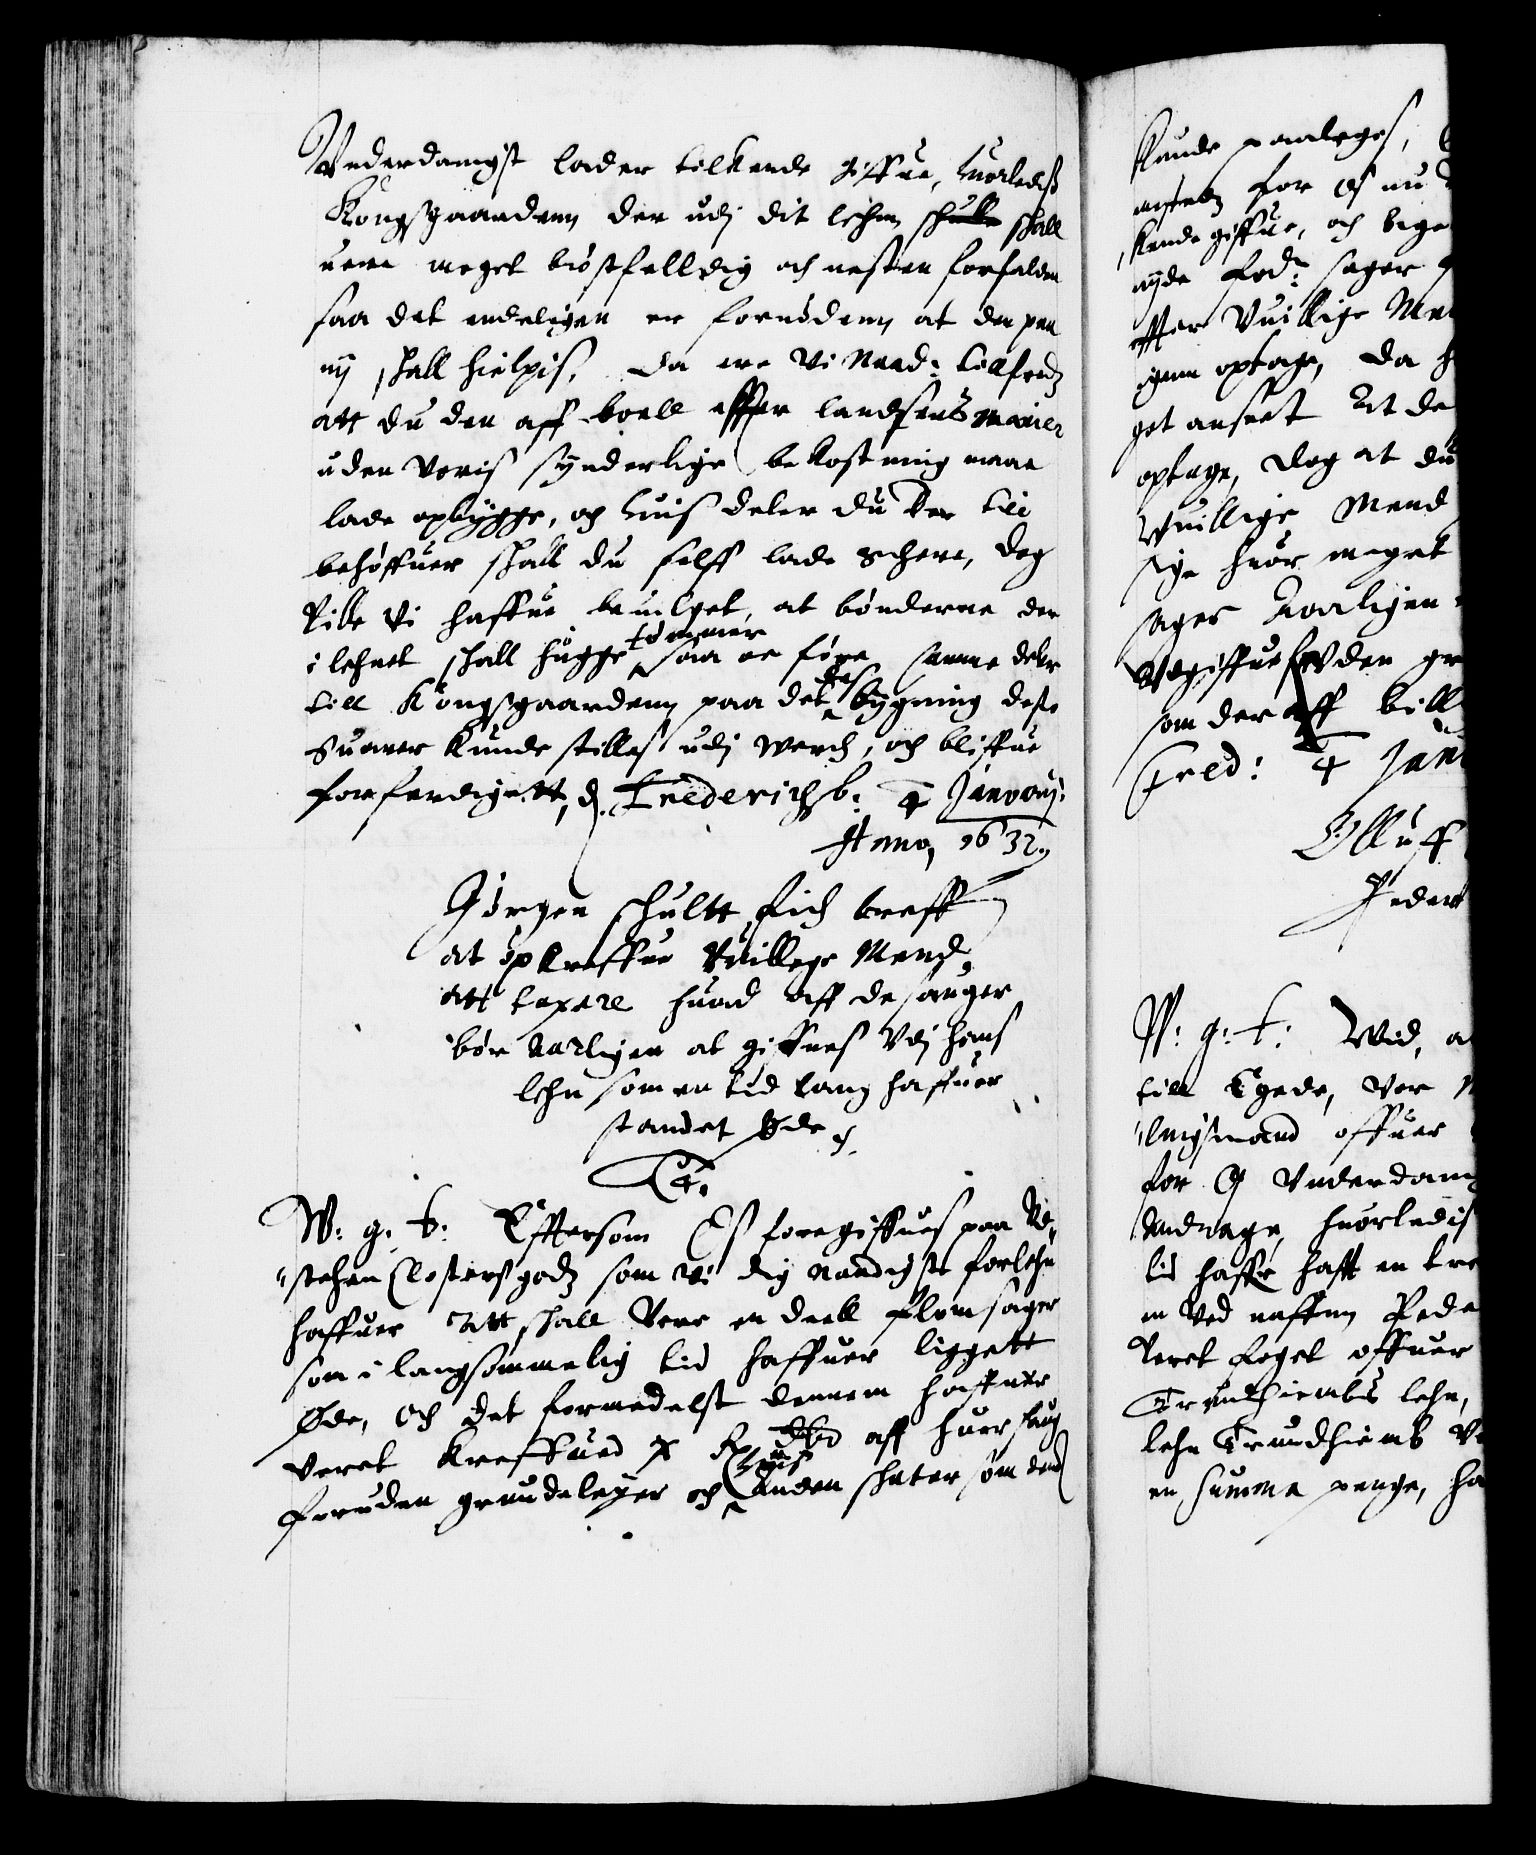 Vnderdanigst lader tilkende giffue, huorledis
Kongsgaardenn der udj dit lehn skulle skall
uere meget biøstfelldig och nesten forfalden
saa det endeligen er fornødenn at den paa
ny skall hielpis, da ere Vi Naad: tillfreds
att du den aff boell effter landsens maner
uden voris synderlige bekostning maa
lade opbygge, och huis deler du der till
behøffuer skall du selff lade schere, dog
ville Vi haffue beuilget, at bønderne der
i lehnet skall hugge tømmer saa oc føre samme deler
till Kongsgaardenn paa det des bygning deste
snarer kunde stilles udj werch, och bliffue
forferdigett, d. Frederichsb: 4 Januarij.
Anno, 1632.
Jørgen schultt fich breff
at opkreffue Vuillege Mend,
att taxere huad aff de sauger
bør aarligen at giffues Vdj hans
lehn som en tid lang haffuer
standet Øde.
W: g: t: Efftersom Os foregiffues paa Vd-
stehen Closters gods som Vi dig naadigste forlehnt
haffuer att skall vere en deell flomsager
som i langsommelig tid haffuer liggett
Øde, och det formedelst dennem haffuer
veret kreffued x Rdr aff huer saug
foruden grundeleyer och huis anden skatter som dend
Kunde paalegges,
for os nu
kende giffue, och bege
nyde ford: sager
effter Vuillige Men
igenn optage, da h
get anseet At de
optage, dog at du
Vuillige Mend
sige huor meget
sager Aarligen
Vdgiffues uden gr
som der aff bill
Fred: 4 Janu
Olluff
Peder
W: g: t: Wid, a
till Egede, Vor M
lengsmand offuer
for Os Vnderdanig
Andrage, huorledis
tid haffr hafft en tre
en Ved naffnn Peder
veret foget offuer
Trundhiembs lehn,
lehn Trundhiemb V
en Summa penge, ha